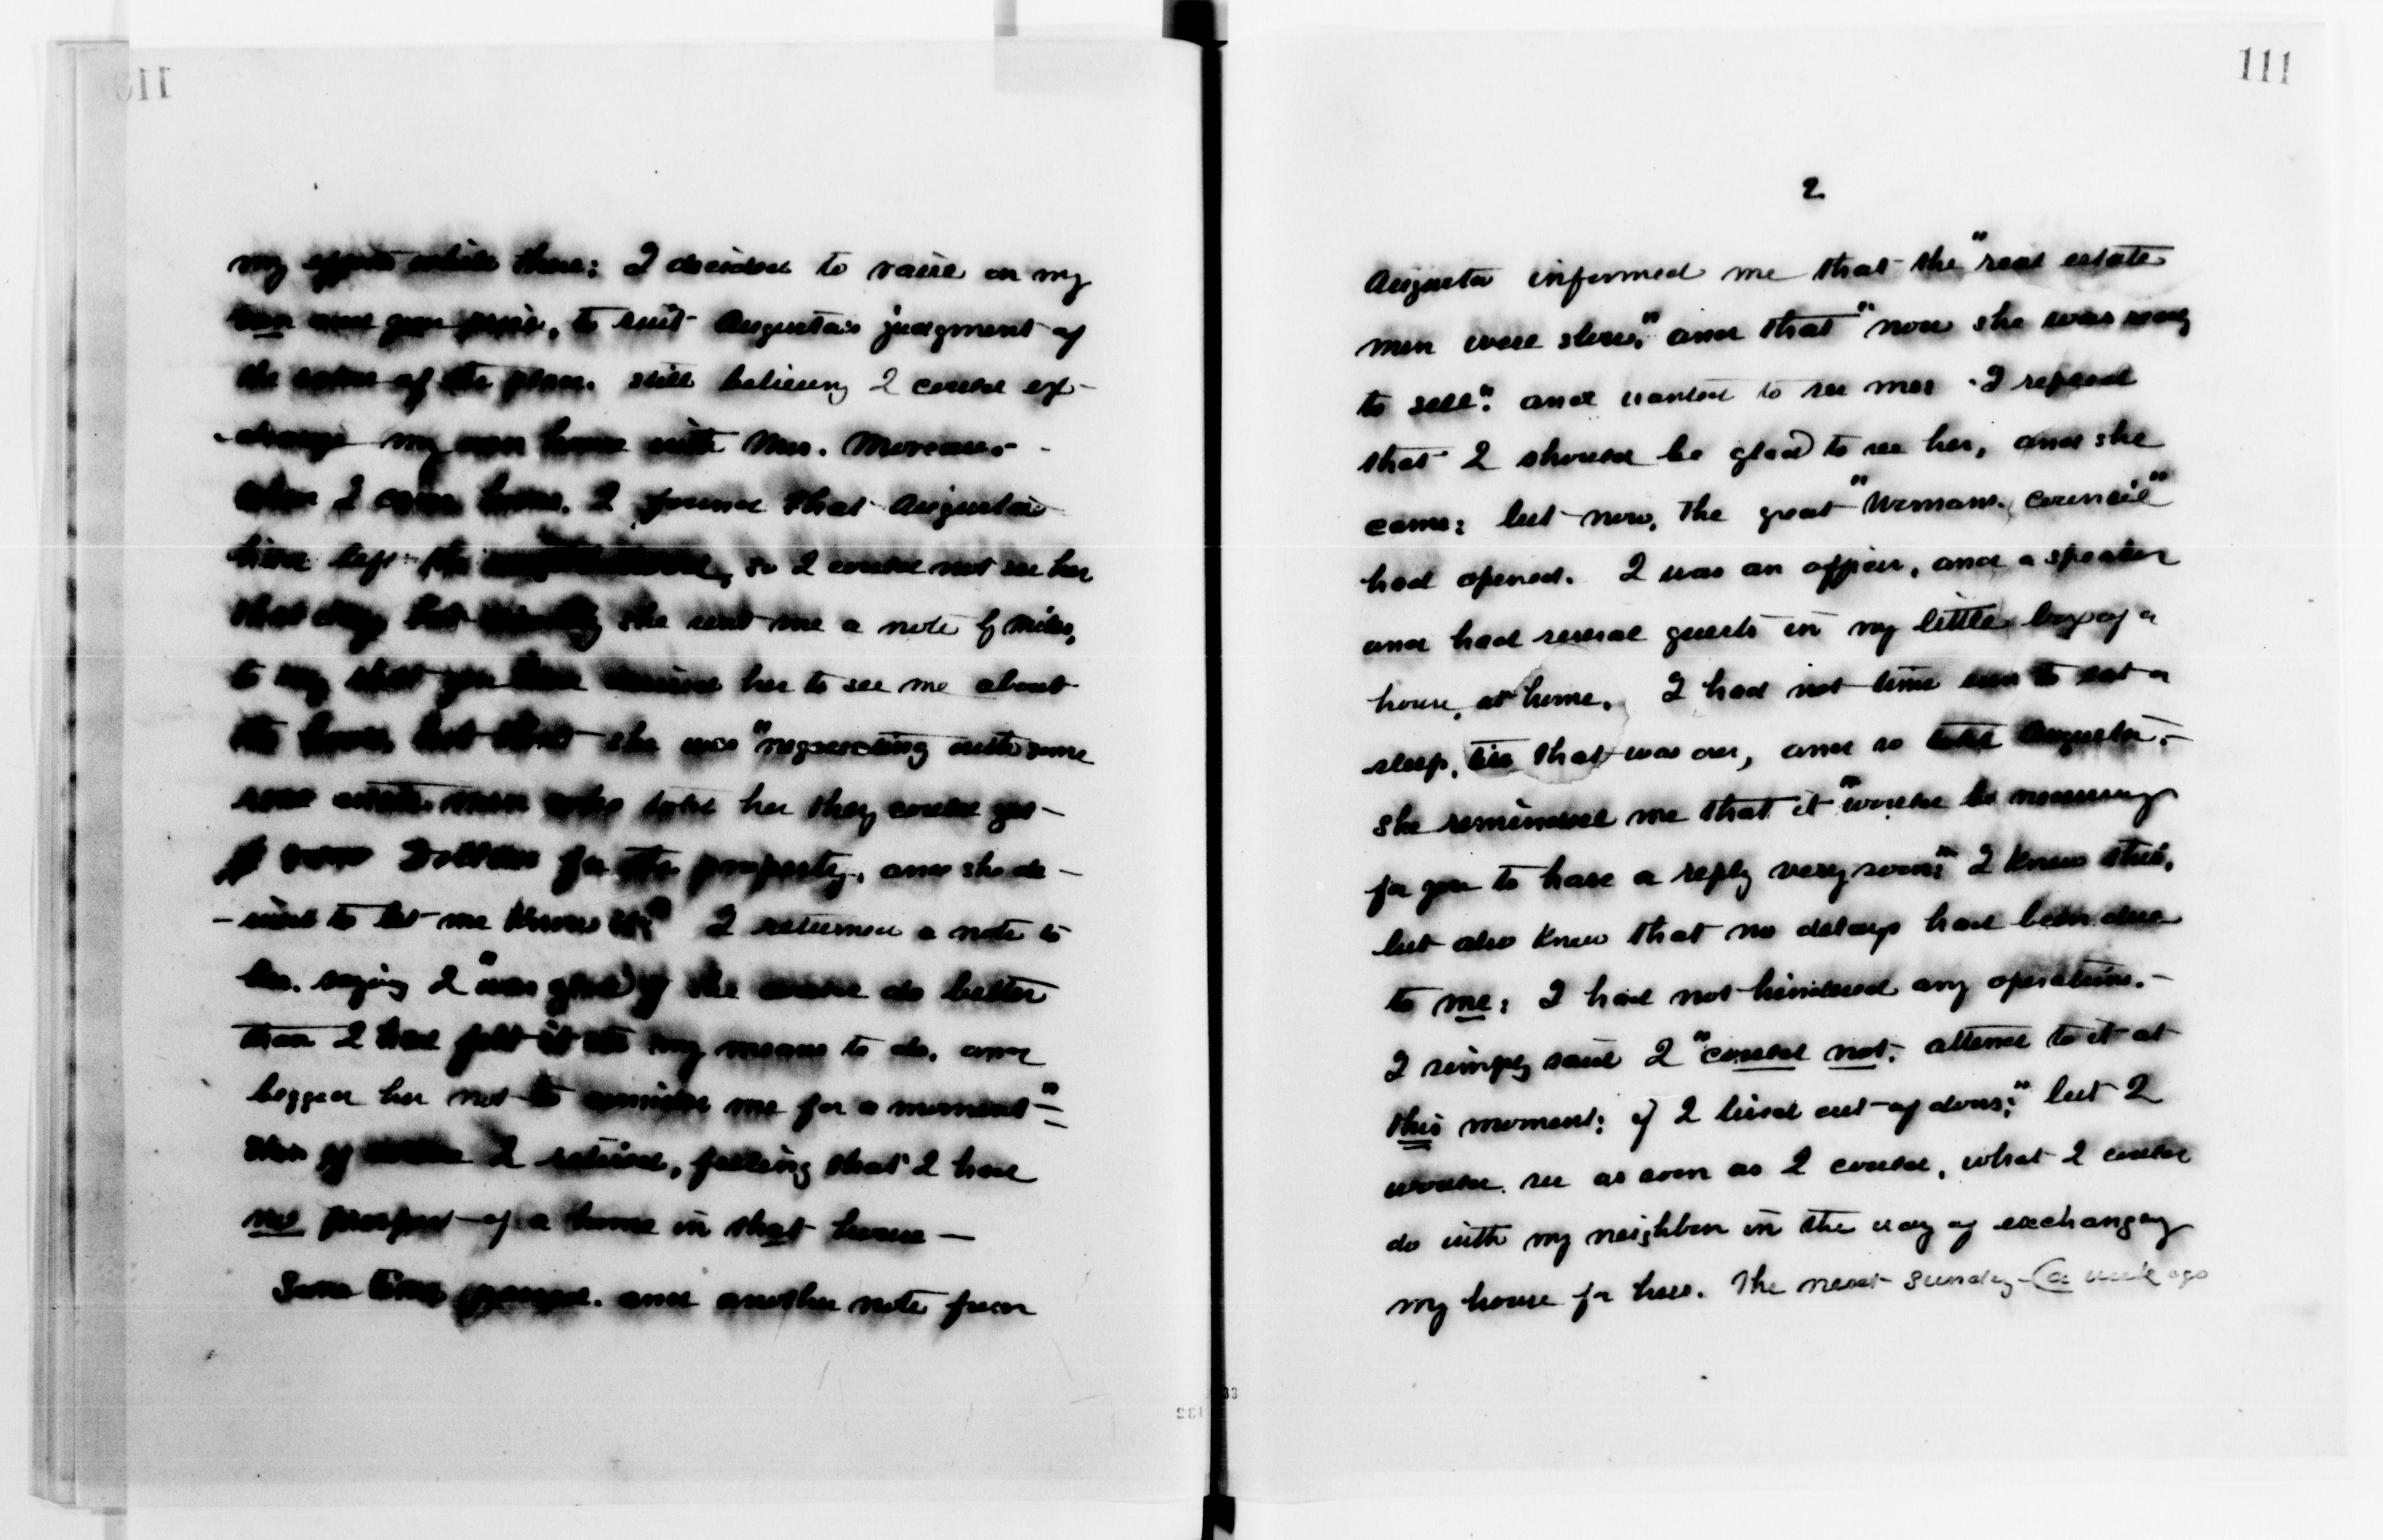 110
my while there: I decided to raise on my
own and give price, to suit Augusta's judgment of
the value of the place. still believing I could ex-
-change my own house with Mrs. Moreau.
when I came home. I found that Augusta
had left the so I could not see her
that day but she sent me a note by mike,
to say that you had advised her to see me about
the house, but that she was "negociating with some
real estate men who told her they could get
Dollars for the property, and she de-
-sired to let me know it." I returned a note to
her. saying I "was glad if she could do better
than I had felt it in my means to do. and
begged her not to consider me for a moment"-
I retired, feeling that I had
no prospect of a home in that house —
Some time passed. and another note from
111
2
Augusta informed me that the "real estate
men were slow," and that "now she was ready
to sell". and wanted to see me. I replied
that I should be glad to see her, and she
came: but now, the great "Womans. Council"
had opened. I was an officer, and a speaker
and had several guests in my little box of a
house, at home. I had not time even to eat or
sleep, till that was over, and so told Augusta.-
she reminded me that it "would be necessary
for you to have a reply very soon." I knew this,
but also knew that no delays had been due
to me: I had not hindered any operations.-
I simply said I "could not, attend to it at
this moment: if I lived out of doors;" but I
would. see as soon as I could, what I could
do with my neighbor in the way of exchanging
my house for hers. The next Sunday (a week ago
133